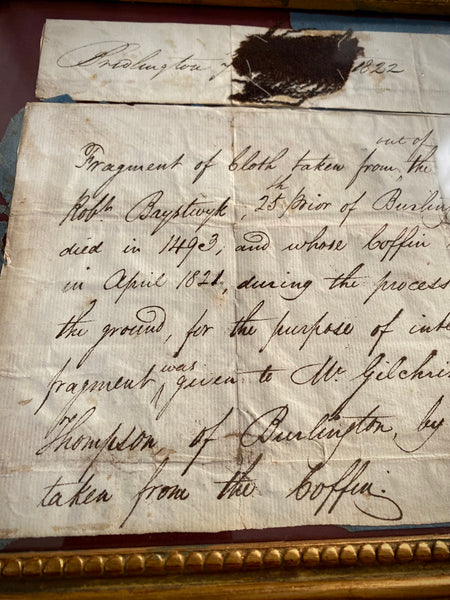 Bridlington 1822
out of
Fragment of Cloth taken from the
Robt. Brystwyk, 25th Prior of Burlin
died in 1493, and whose Coffin
in April 1821, during the process
the ground, for the purpose of inte
fragment was given to Mr. Gilchri
Thompson of Burlington, by
taken from the Coffin.